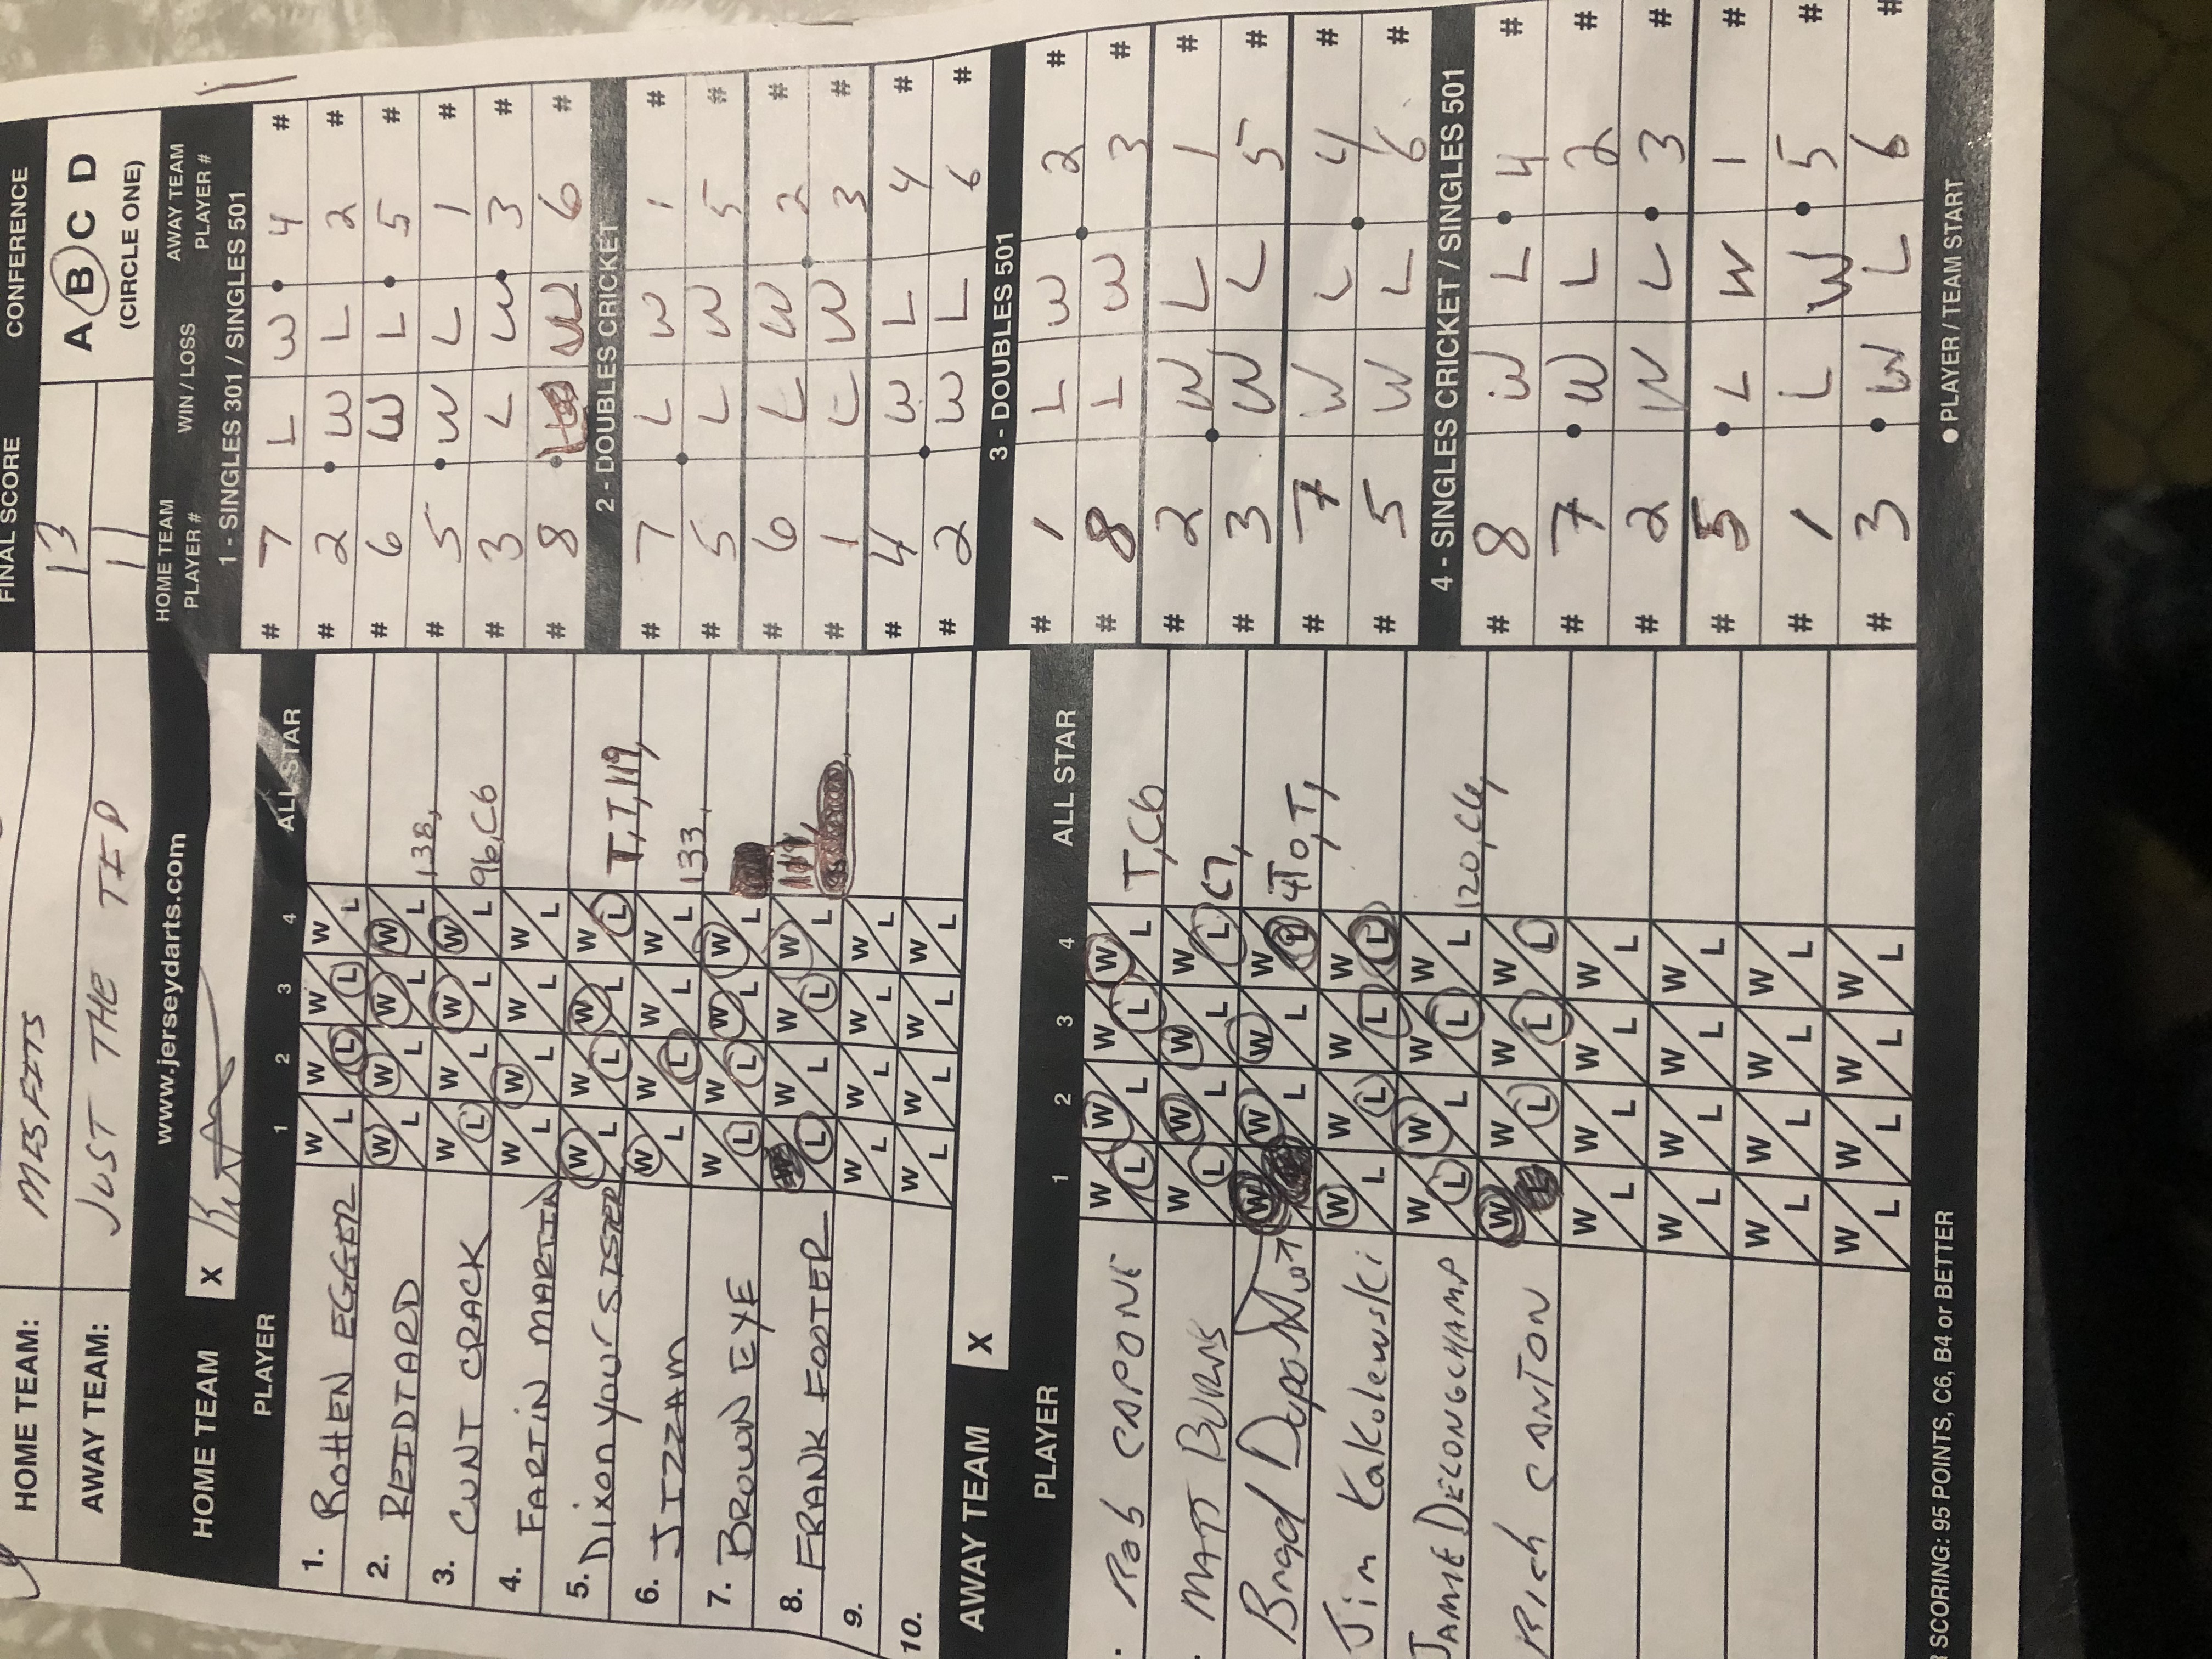 FINAL SCORE CONFERENCE
HOME TEAM: MISFITS 13
AWAY TEAM: JUST THE TIP 11
A B C D
(CIRCLE ONE)
www.jerseydarts.com
HOME TEAM X
PLAYER 1 2 3 4 ALL STAR
1. ROTTEN EGGER W L W L W L W L
2. REIDTARD W L W L W L W L 138,
3. CUNT CRACK W L W L W L W L 96, C6
4. FARTIN MARTIN W L W L W L W L
5. Dixon your SISTER W L W L W L W L T, T, 119,
6. JIZZAM W L W L W L W L 133,
7. BROWN EYE W L W L W L W L
8. FRANK FOOTER W L W L W L W L
9. W L W L W L W L
10. W L W L W L W L
AWAY TEAM X
PLAYER 1 2 3 4 ALL STAR
Rob CAPONE W L W L W L W L T, C6
MATT BURNS W L W L W L W L C7,
Brad Dupont W L W L W L W L 4T0, T,
Jim Kakolewski W L W L W L W L
JAMIE DELONGCHAMP W L W L W L W L 120, C6,
Rich CANTON W L W L W L W L
W L W L W L W L
W L W L W L W L
W L W L W L W L
W L W L W L W L
SCORING: 95 POINTS, C6, B4 or BETTER
HOME TEAM PLAYER # WIN / LOSS AWAY TEAM PLAYER #
1 - SINGLES 301 / SINGLES 501
# 7 L W 4 #
# 2 W L 2 #
# 6 W L 5 #
# 5 W L 1 #
# 3 L W 3 #
# 8 W 6 #
2 - DOUBLES CRICKET
# 7 L W 1 #
# 5 L W 5 #
# 6 L W 2 #
# 1 L W 3 #
# 4 W L 4 #
# 2 W L 6 #
3 - DOUBLES 501
# 1 L W 2 #
# 8 L W 3 #
# 2 W L 1 #
# 3 W L 5 #
# 7 W L 4 #
# 5 W L 6 #
4 - SINGLES CRICKET / SINGLES 501
# 8 W L 4 #
# 7 W L 2 #
# 2 W L 3 #
# 5 L W 1 #
# 1 L W 5 #
# 3 W L 6 #
● PLAYER / TEAM START